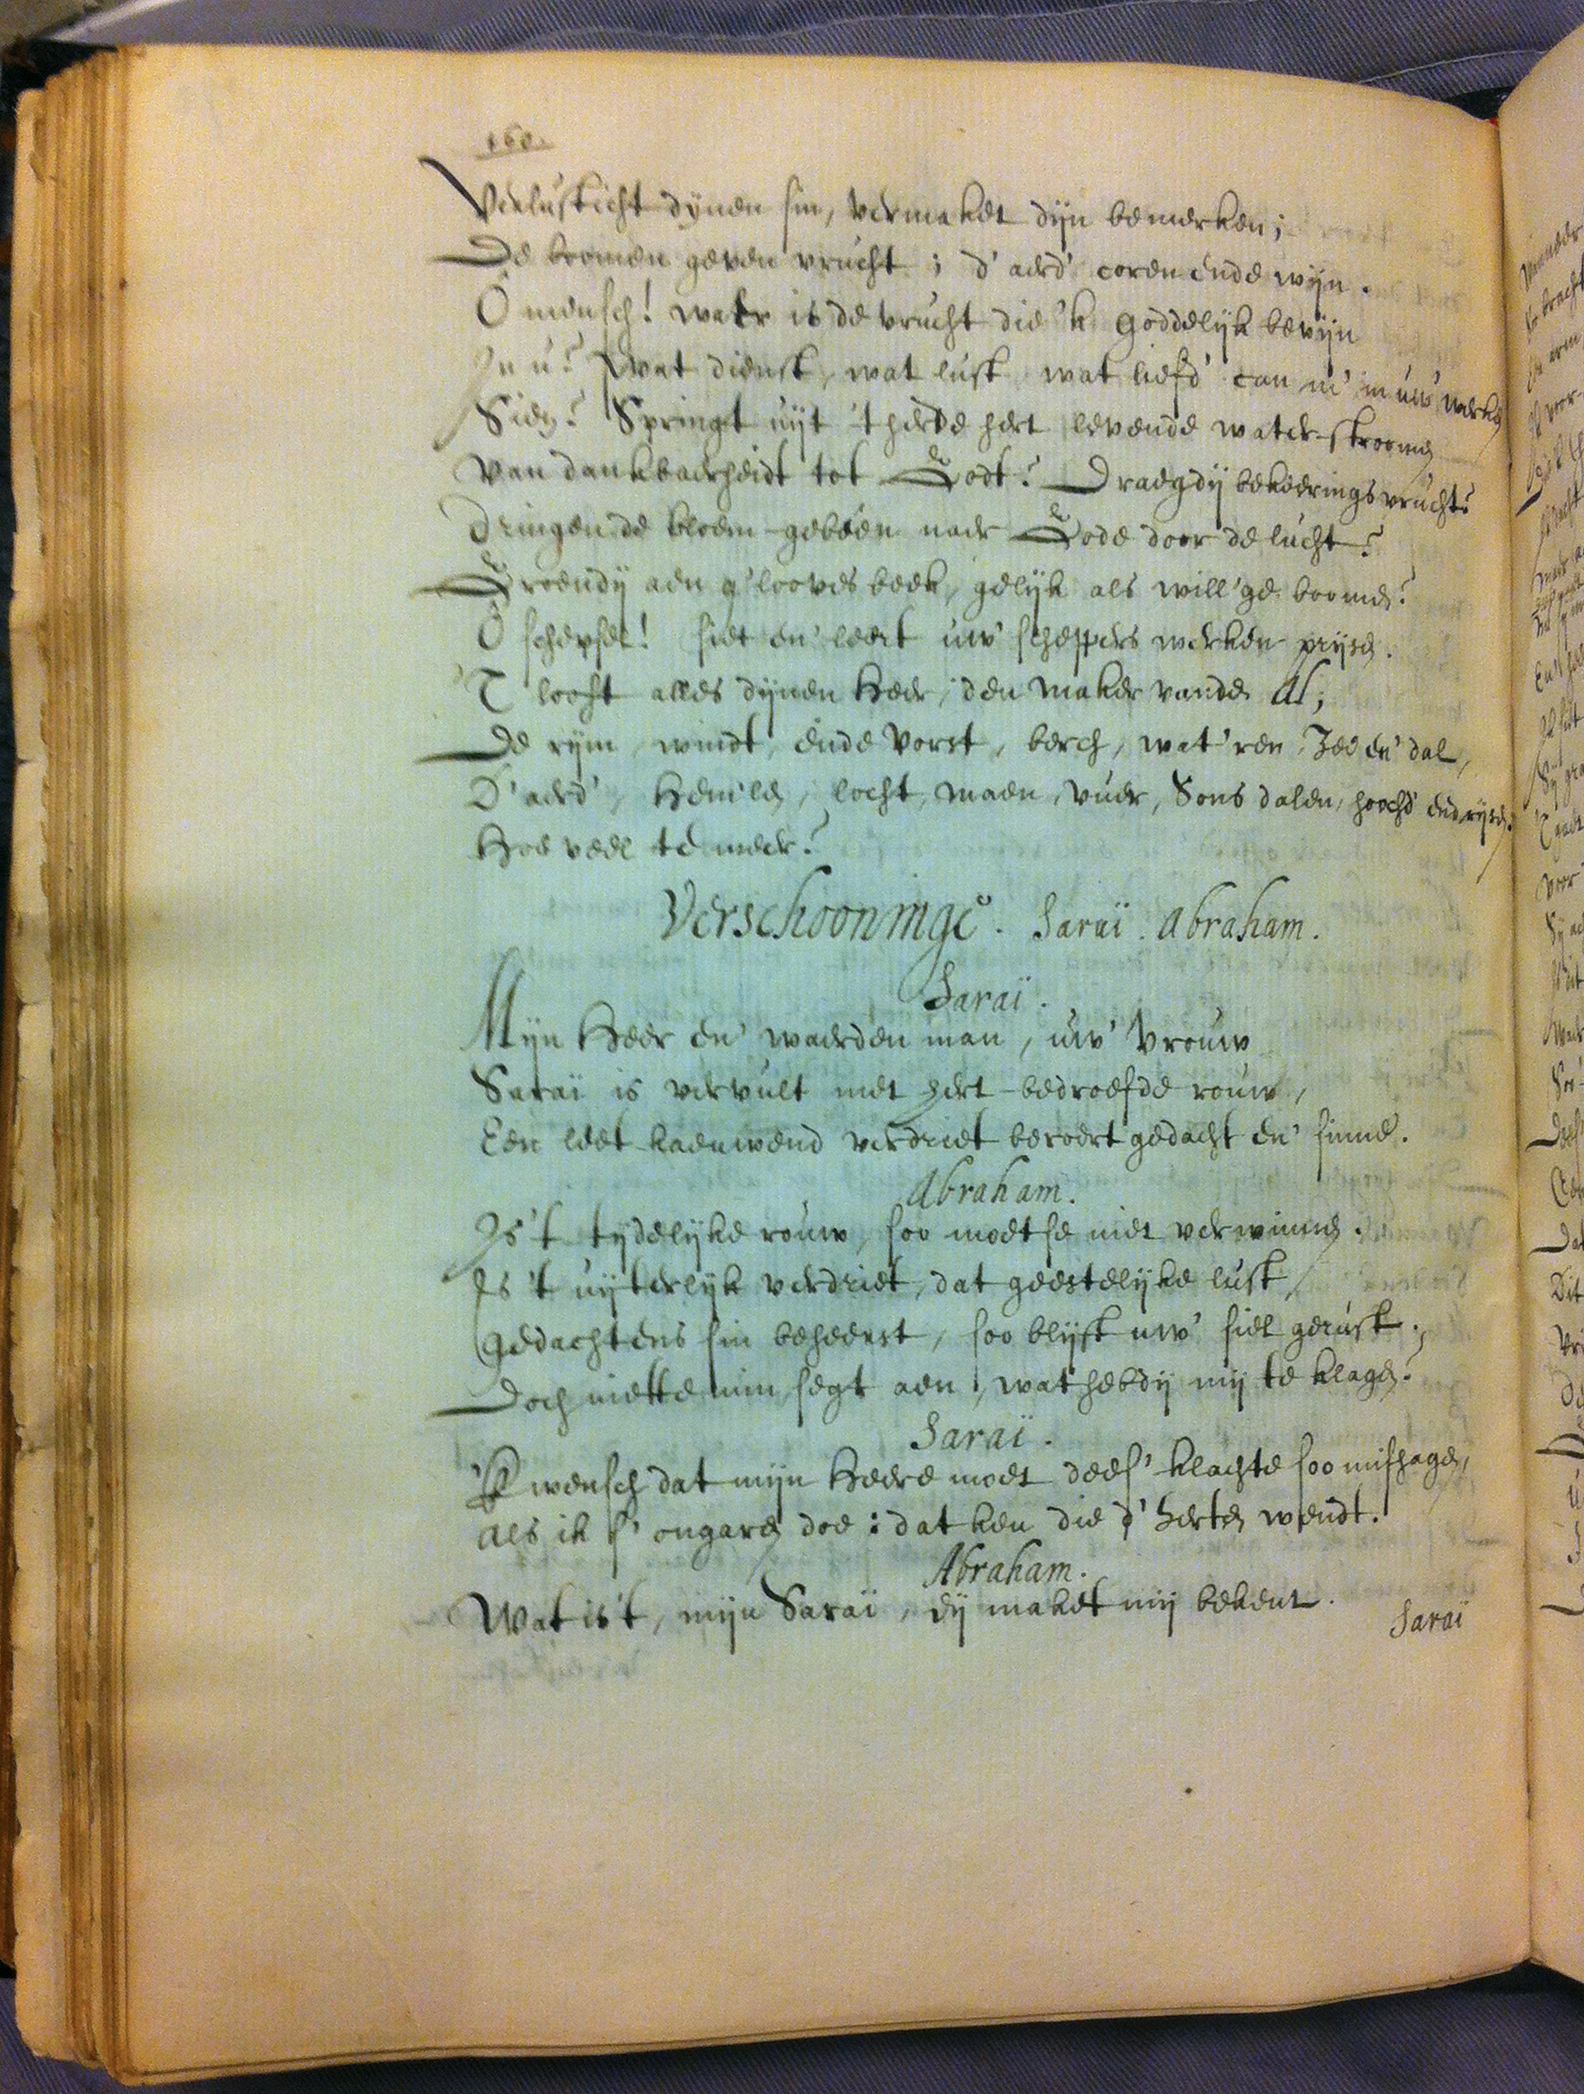 160.
Verlusticht dijnen sin, vermaket dijn bemerken;
De boomen geven vrucht; d'aerd' coren ende wijn.
O mensch! waer is de vrucht die 'k goddelijk bevijn
In u? Wat dienst, wat lust, wat liefd' can m' in uw' werken
Sien? Springt uijt 't herde hert levende water-stroomen
Van dankbaerheidt tot Godt? Draegdij bekeerings vrucht?
Dringen de bloem-gebeên naer Gode door de lucht?
Groendij aen g'looves beek, gelijk als will'ge boomen?
O schepsel! siet en' leert uw' scheppers werken prijsen.
'T looft alles dijnen Heer, den maker vande Al;
De rijm, windt, ende vorst, berch, wat'ren, Zee en' dal,
D'aerd', Hem'len, locht, maen, vuer, Sons dalen, hoochd' end rijsen.
Hoe veel te meer?
Verschooninge. Saraï. Abraham.
Saraï.
Mijn Heer en' waerden man, uw' vrouw
Saraï is vervult met hert-bedroefde rouw,
Een leet-kaeuwend verdriet beroert gedacht en' sinne.
Abraham.
Is 't tijdelijke rouw, soo moet se niet verwinnen.
Is 't uijterlijk verdriet, dat geestelijke lust,
Gedachtens sin beheerst, soo blijft uw' siel gerust.
Doch niettemin segt aen, wat hebdij mij te klagen?
Saraï.
'K wensch dat mijn Heere moet dees' klachte soo mishagen,
Als ik s' ongaren doe: dat ken die d' herten wendt.
Abraham.
Wat is 't, mijn Saraï, dij maket mij bekent.
Saraï